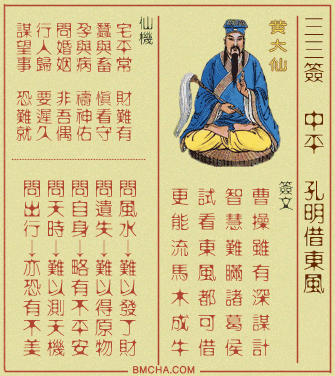 三三簽 中平 孔明借東風
黃大仙
簽文
曹操雖有深謀計
智慧難瞞諸葛侯
試看東風都可借
更能流馬木成牛
仙機
宅平常 財難有
蠶與畜 慎看守
孕與病 禱神佑
問婚姻 非吾偶
行人歸 要遲久
謀望事 恐難就
問風水→難以發了財
問遺失→難以得原物
問自身→略有不平安
問天時→難以測天機
問出行→亦恐有不美
BMCHA.COM